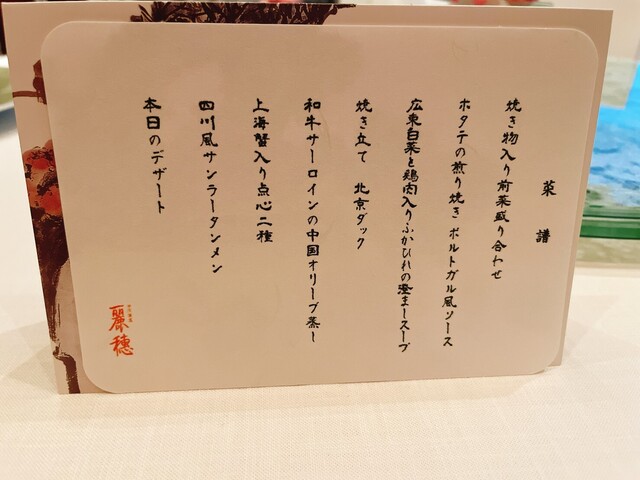 菜譜
焼き物入り前菜盛り合わせ
ホタテの煎り焼き ポルトガル風ソース
広東白菜と鶏肉入りふかひれの澄ましスープ
焼き立て 北京ダック
和牛サーロインの中国オリーブ蒸し
上海蟹入り点心二種
四川風サンラータンメン
本日のデザート
麗穂